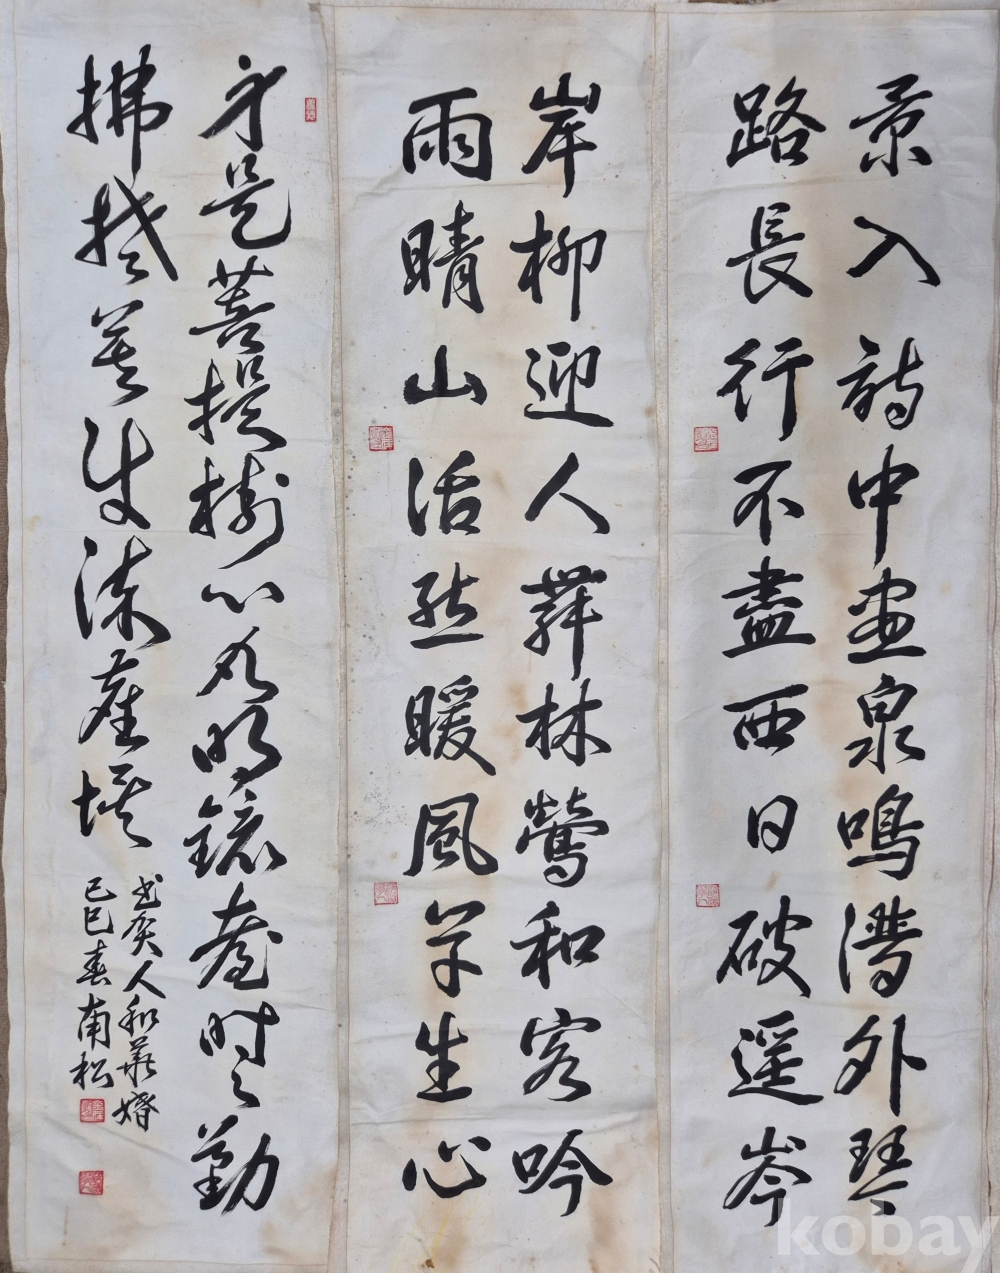 景入詩中畫泉鳴譜外琴
路長行不盡西日破遙岑
岸柳迎人舞林鶯和客吟
雨晴山活態暖風草生心
身是菩提樹心如明鏡臺時々勤
拂拭莫使染塵埃
書人和華婚
己巳春南松
kobay